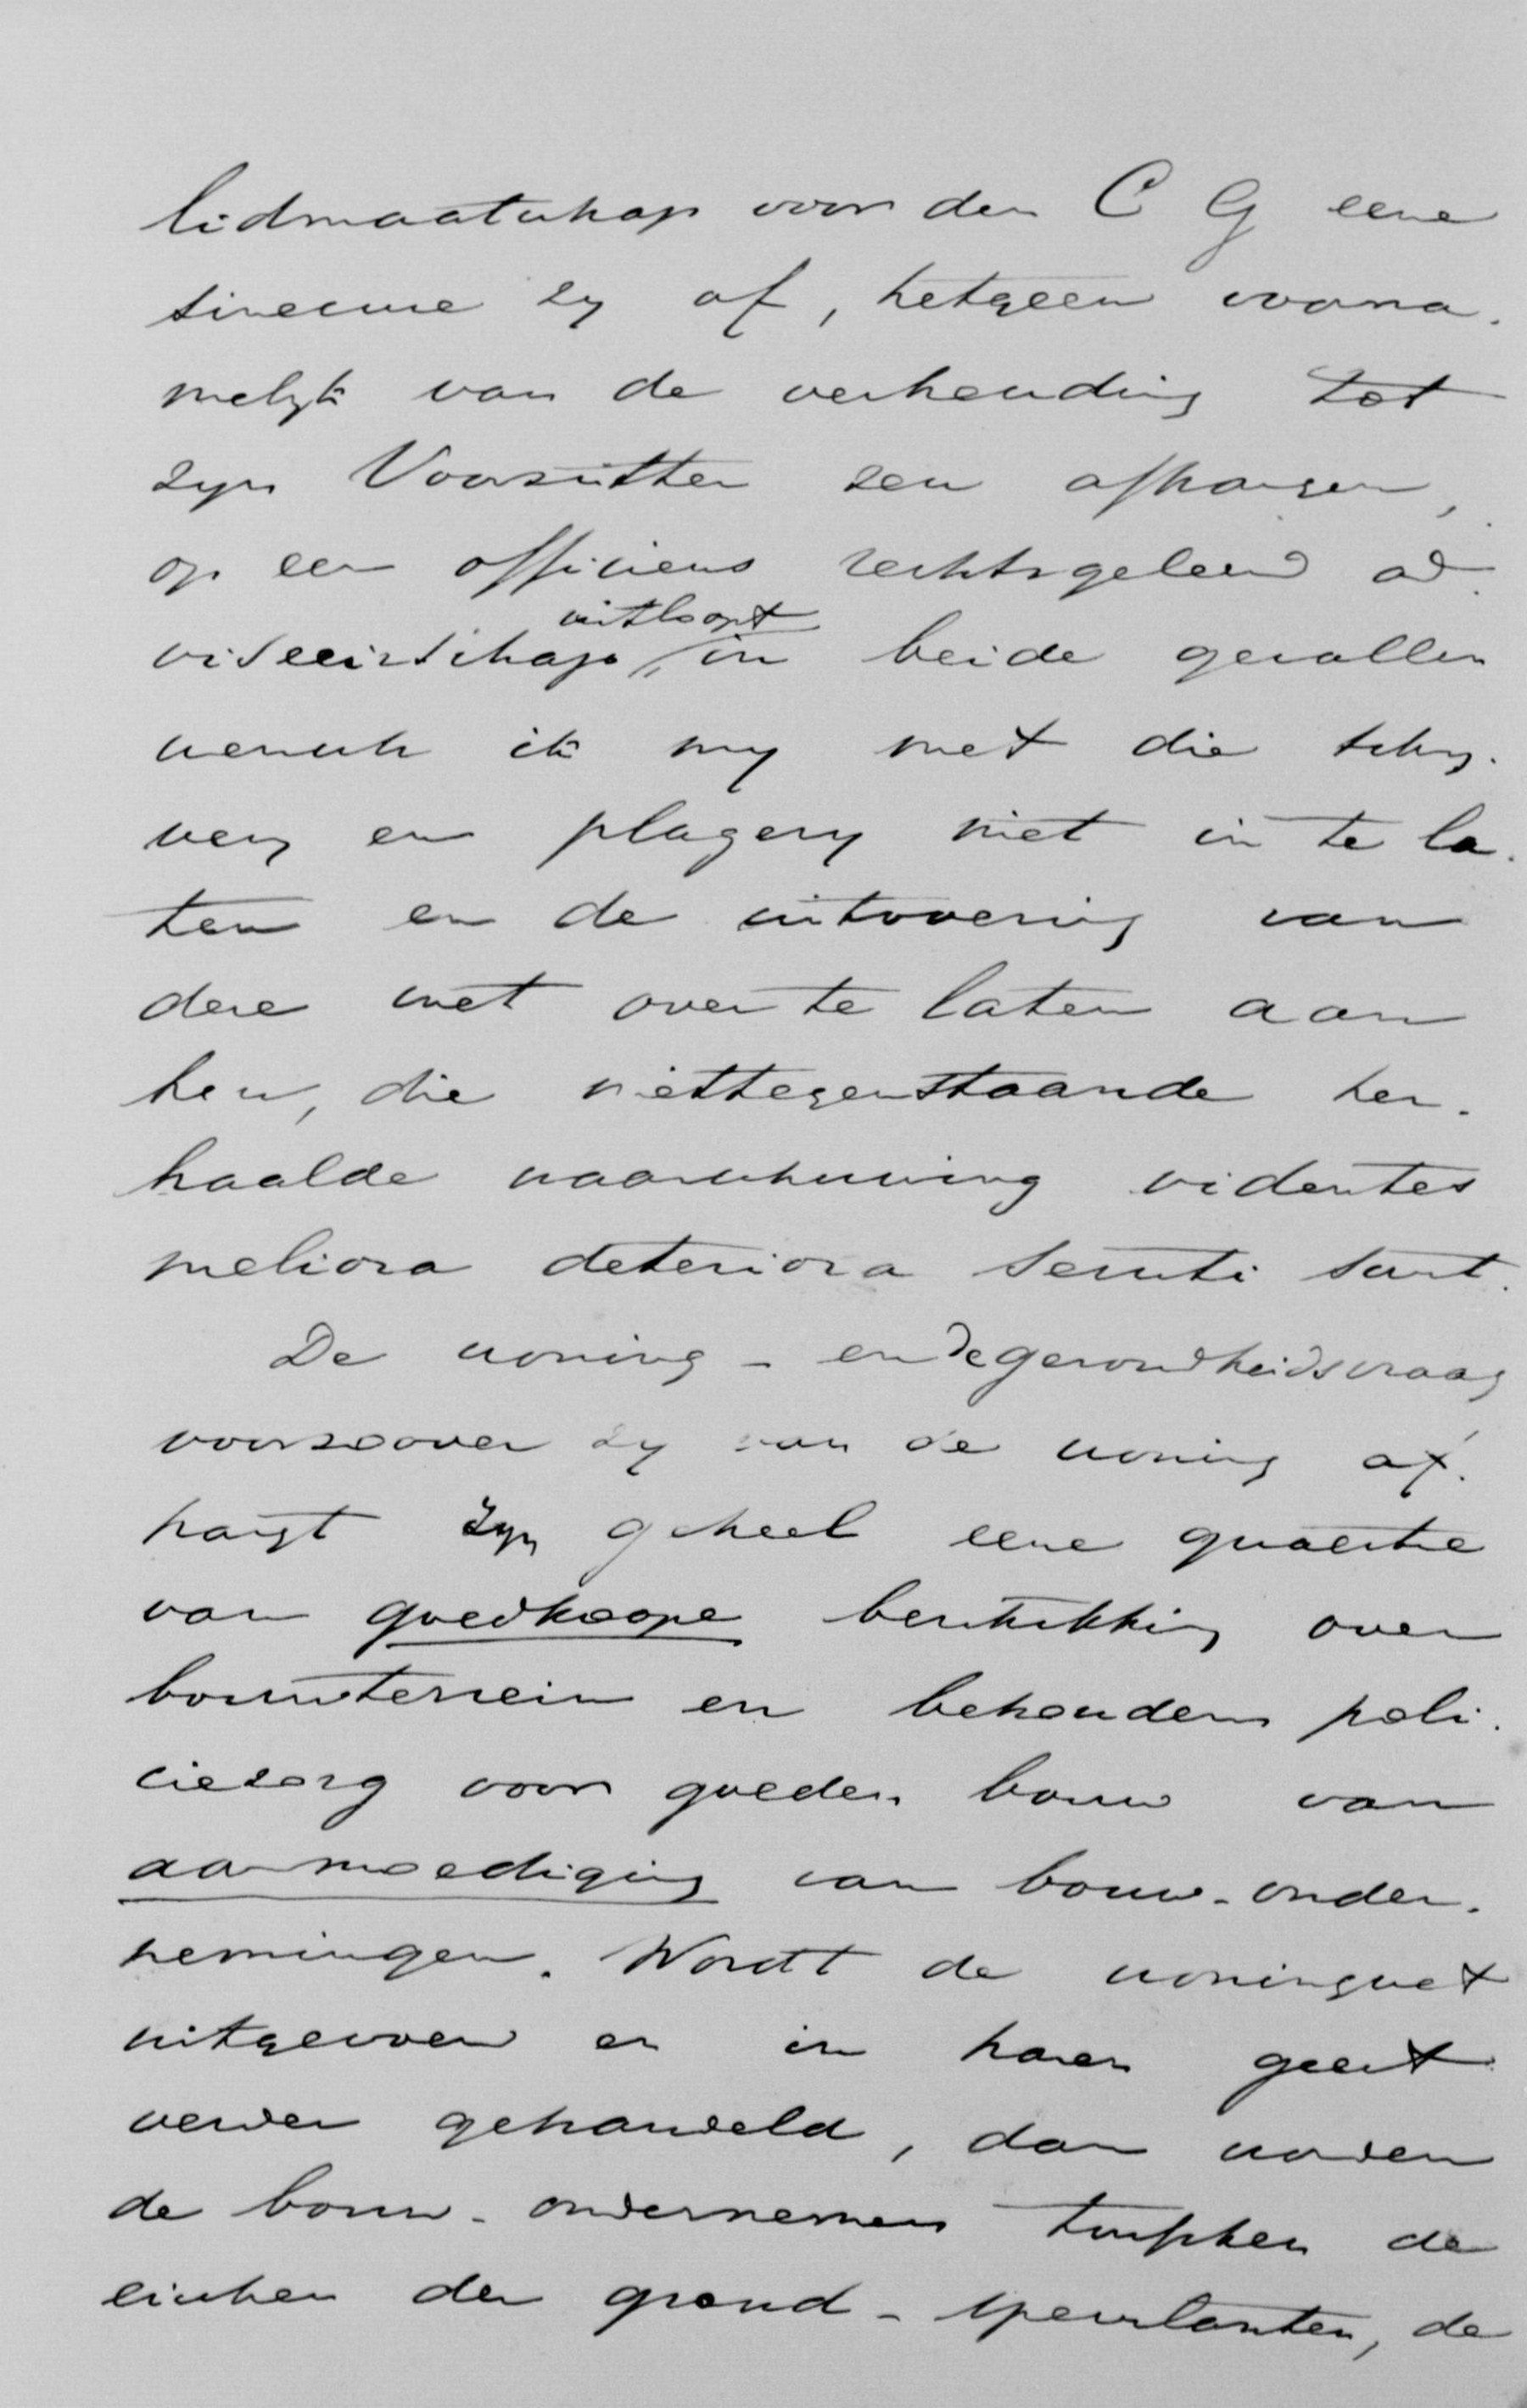 lidmaatschap voor den C G eene
sinecure zy of, hetgeen voorna-
melyk van de verhouding tot
zyn Voorzitter zou afhangen,
op een officieus rechtsgeleerd ad-
viseurschap uitloopt in beide gevallen
wensch ik my met die schry-
very en plagery niet in te la-
ten en de uitvoering van
deze wet over te laten aan
hen, die niettegenstaande her-
haalde waarschuwing videntes
meliora deteriora secuti sunt.
De woning- en de gezondheidsvraag
voorzoover zy van de woning af-
hangt zyn geheel eene quaestie
van goedkoope beschikking over
bouwterrein en behoudens poli-
ciezorg voor goeden bouw van
aanmoediging van bouw-onder-
nemingen. Wordt de woningwet
uitgevoerd en in haren geest
verder gehandeld, dan worden
de bouw-ondernemers tusschen de
eischen der grond-speculanten, de